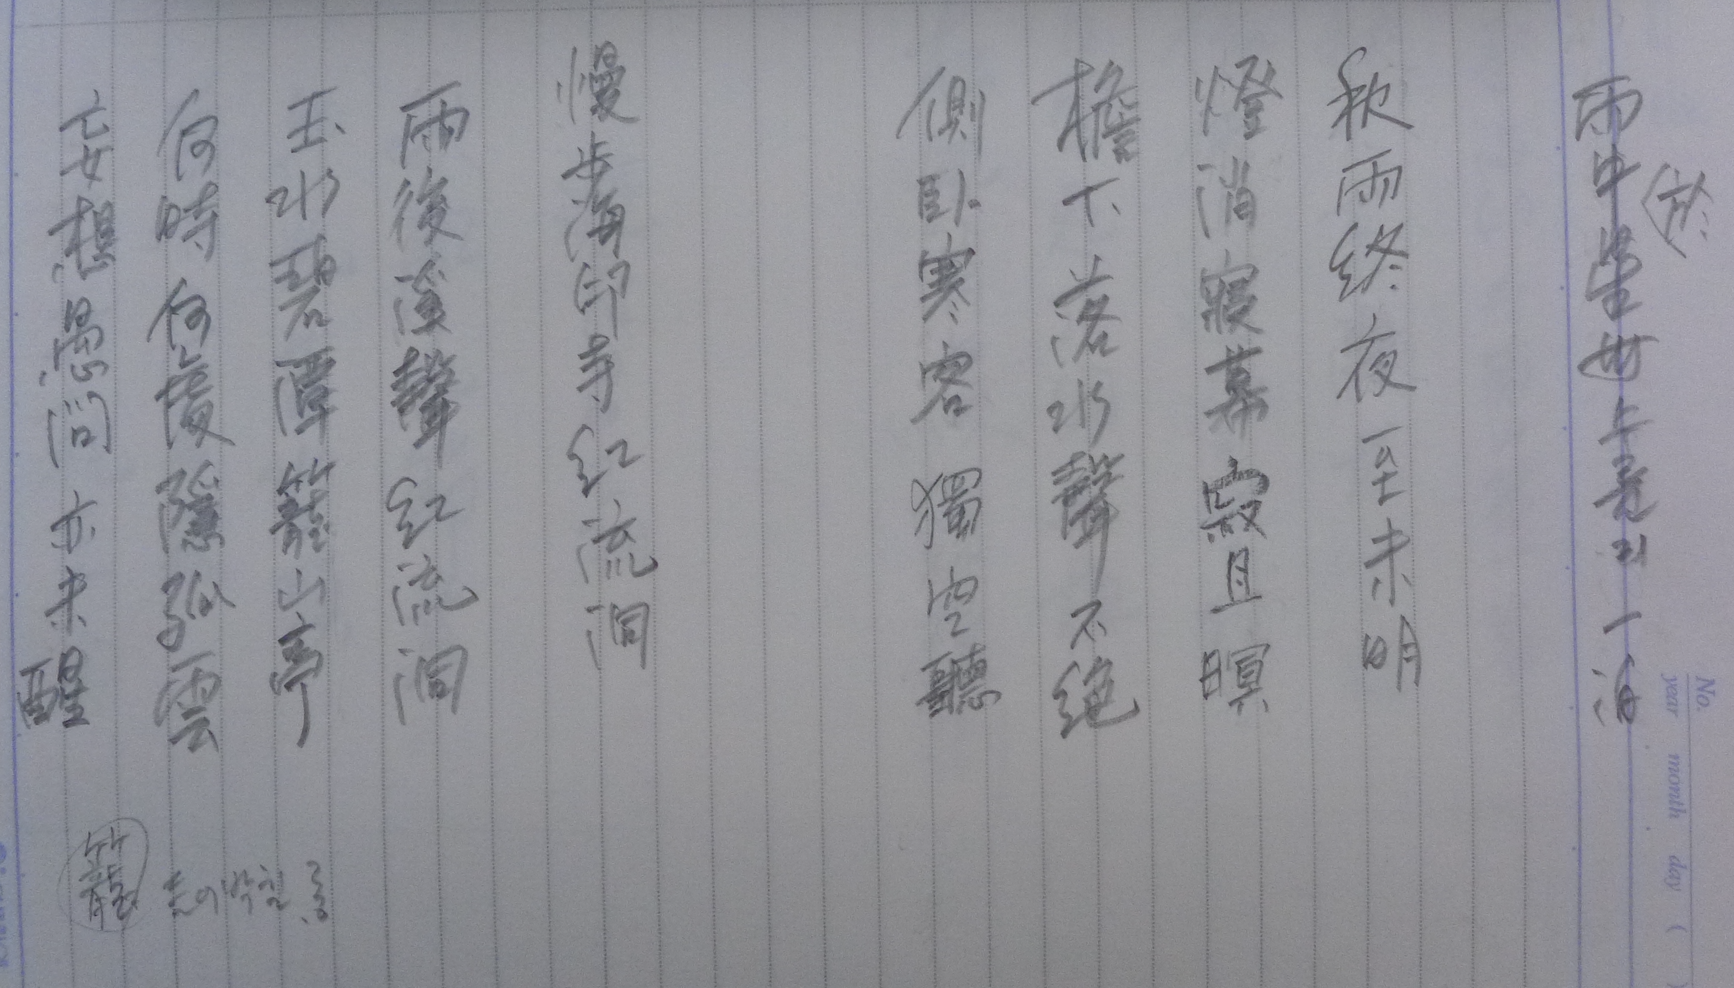 秋雨終夜至未明
燈消寢幕寂且暝
檐下落水聲不絶
側臥寒客獨空聽
慢步海印寺紅流洞
雨後溪聲紅流洞
玉水碧潭籠山亭
何時何處隱孤雲
妄想愚問亦未醒
籠
No.
year month day ( )